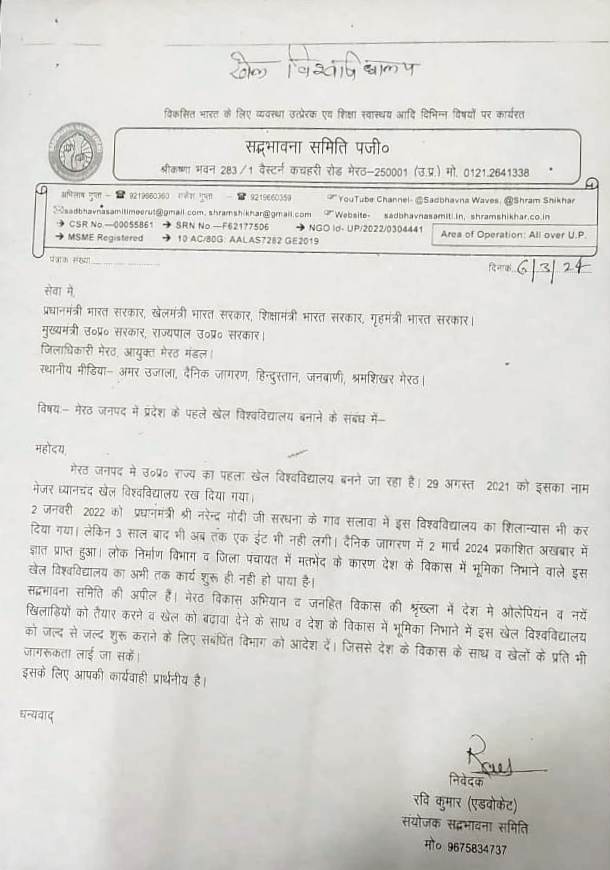 खेल विश्वविद्यालय
विकसित भारत के लिए व्यवस्था उत्प्रेरक एव शिक्षा स्वास्थय आदि विभिन्न विषयों पर कार्यरत
सद्भावना समिति पजी०
श्रीकष्णा भवन 283/1 वैस्टर्न कचहरी रोड मेरठ–250001 (उ.प्र.) मो. 0121.2641338
अभिलाष गुप्ता – ☎ 9219660360 राकेश गुप्ता – ☎ 9219660359
☞ YouTube Channel- @Sadbhavna Waves, @Shram Shikhar
✉sadbhavnasamitimeerut@gmail.com, shramshikhar@gmail.com ☞ Website- sadbhavnasamiti.in, shramshikhar.co.in
➔ CSR No.—00055861 ➔ SRN No—F62177506 ➔ NGO Id- UP/2022/0304441
➔ MSME Registered ➔ 10 AC/80G: AALAS7282 GE2019
Area of Operation: All over U.P.
पत्रांक संख्या....................
दिनांक. 6/3/24
सेवा में,
प्रधानमंत्री भारत सरकार, खेलमंत्री भारत सरकार, शिक्षामंत्री भारत सरकार, गृहमंत्री भारत सरकार।
मुख्यमंत्री उ०प्र० सरकार, राज्यपाल उ०प्र० सरकार।
जिलाधिकारी मेरठ, आयुक्त मेरठ मंडल।
स्थानीय मीडिया– अमर उजाला, दैनिक जागरण, हिन्दुस्तान, जनबाणी, श्रमशिखर मेरठ।
विषय:– मेरठ जनपद में प्रदेश के पहले खेल विश्वविद्यालय बनाने के संबंध में–
महोदय,
मेरठ जनपद मे उ०प्र० राज्य का पहला खेल विश्वविद्यालय बनने जा रहा है। 29 अगस्त 2021 को इसका नाम
मेजर ध्यानचंद खेल विश्वविद्यालय रख दिया गया।
2 जनवरी 2022 को प्रधानमंत्री श्री नरेन्द्र मोदी जी सरधना के गाव सलावा में इस विश्वविद्यालय का शिलान्यास भी कर
दिया गया। लेकिन 3 साल बाद भी अब तक एक ईंट भी नही लगी। दैनिक जागरण में 2 मार्च 2024 प्रकाशित अखबार में
ज्ञात प्राप्त हुआ। लोक निर्माण विभाग व जिला पंचायत में मतभेद के कारण देश के विकास में भूमिका निभाने वाले इस
खेल विश्वविद्यालय का अभी तक कार्य शुरू ही नही हो पाया है।
सद्भावना समिति की अपील हैं। मेरठ विकास अभियान व जनहित विकास की श्रृंख्ला में देश मे ओलेपियंन व नयें
खिलाड़ियों को तैयार करने व खेल को बढ़ावा देने के साथ व देश के विकास में भूमिका निभाने में इस खेल विश्वविद्यालय
को जल्द से जल्द शुरू कराने के लिए सबंधित विभाग को आदेश दें। जिससे देश के विकास के साथ व खेलों के प्रति भी
जागरूकता लाई जा सकें।
इसके लिए आपकी कार्यवाही प्रार्थनीय है।
धन्यवाद्
निवेदक
रवि कुमार (एडवोकेट)
संयोजक सद्भावना समिति
मो० 9675834737